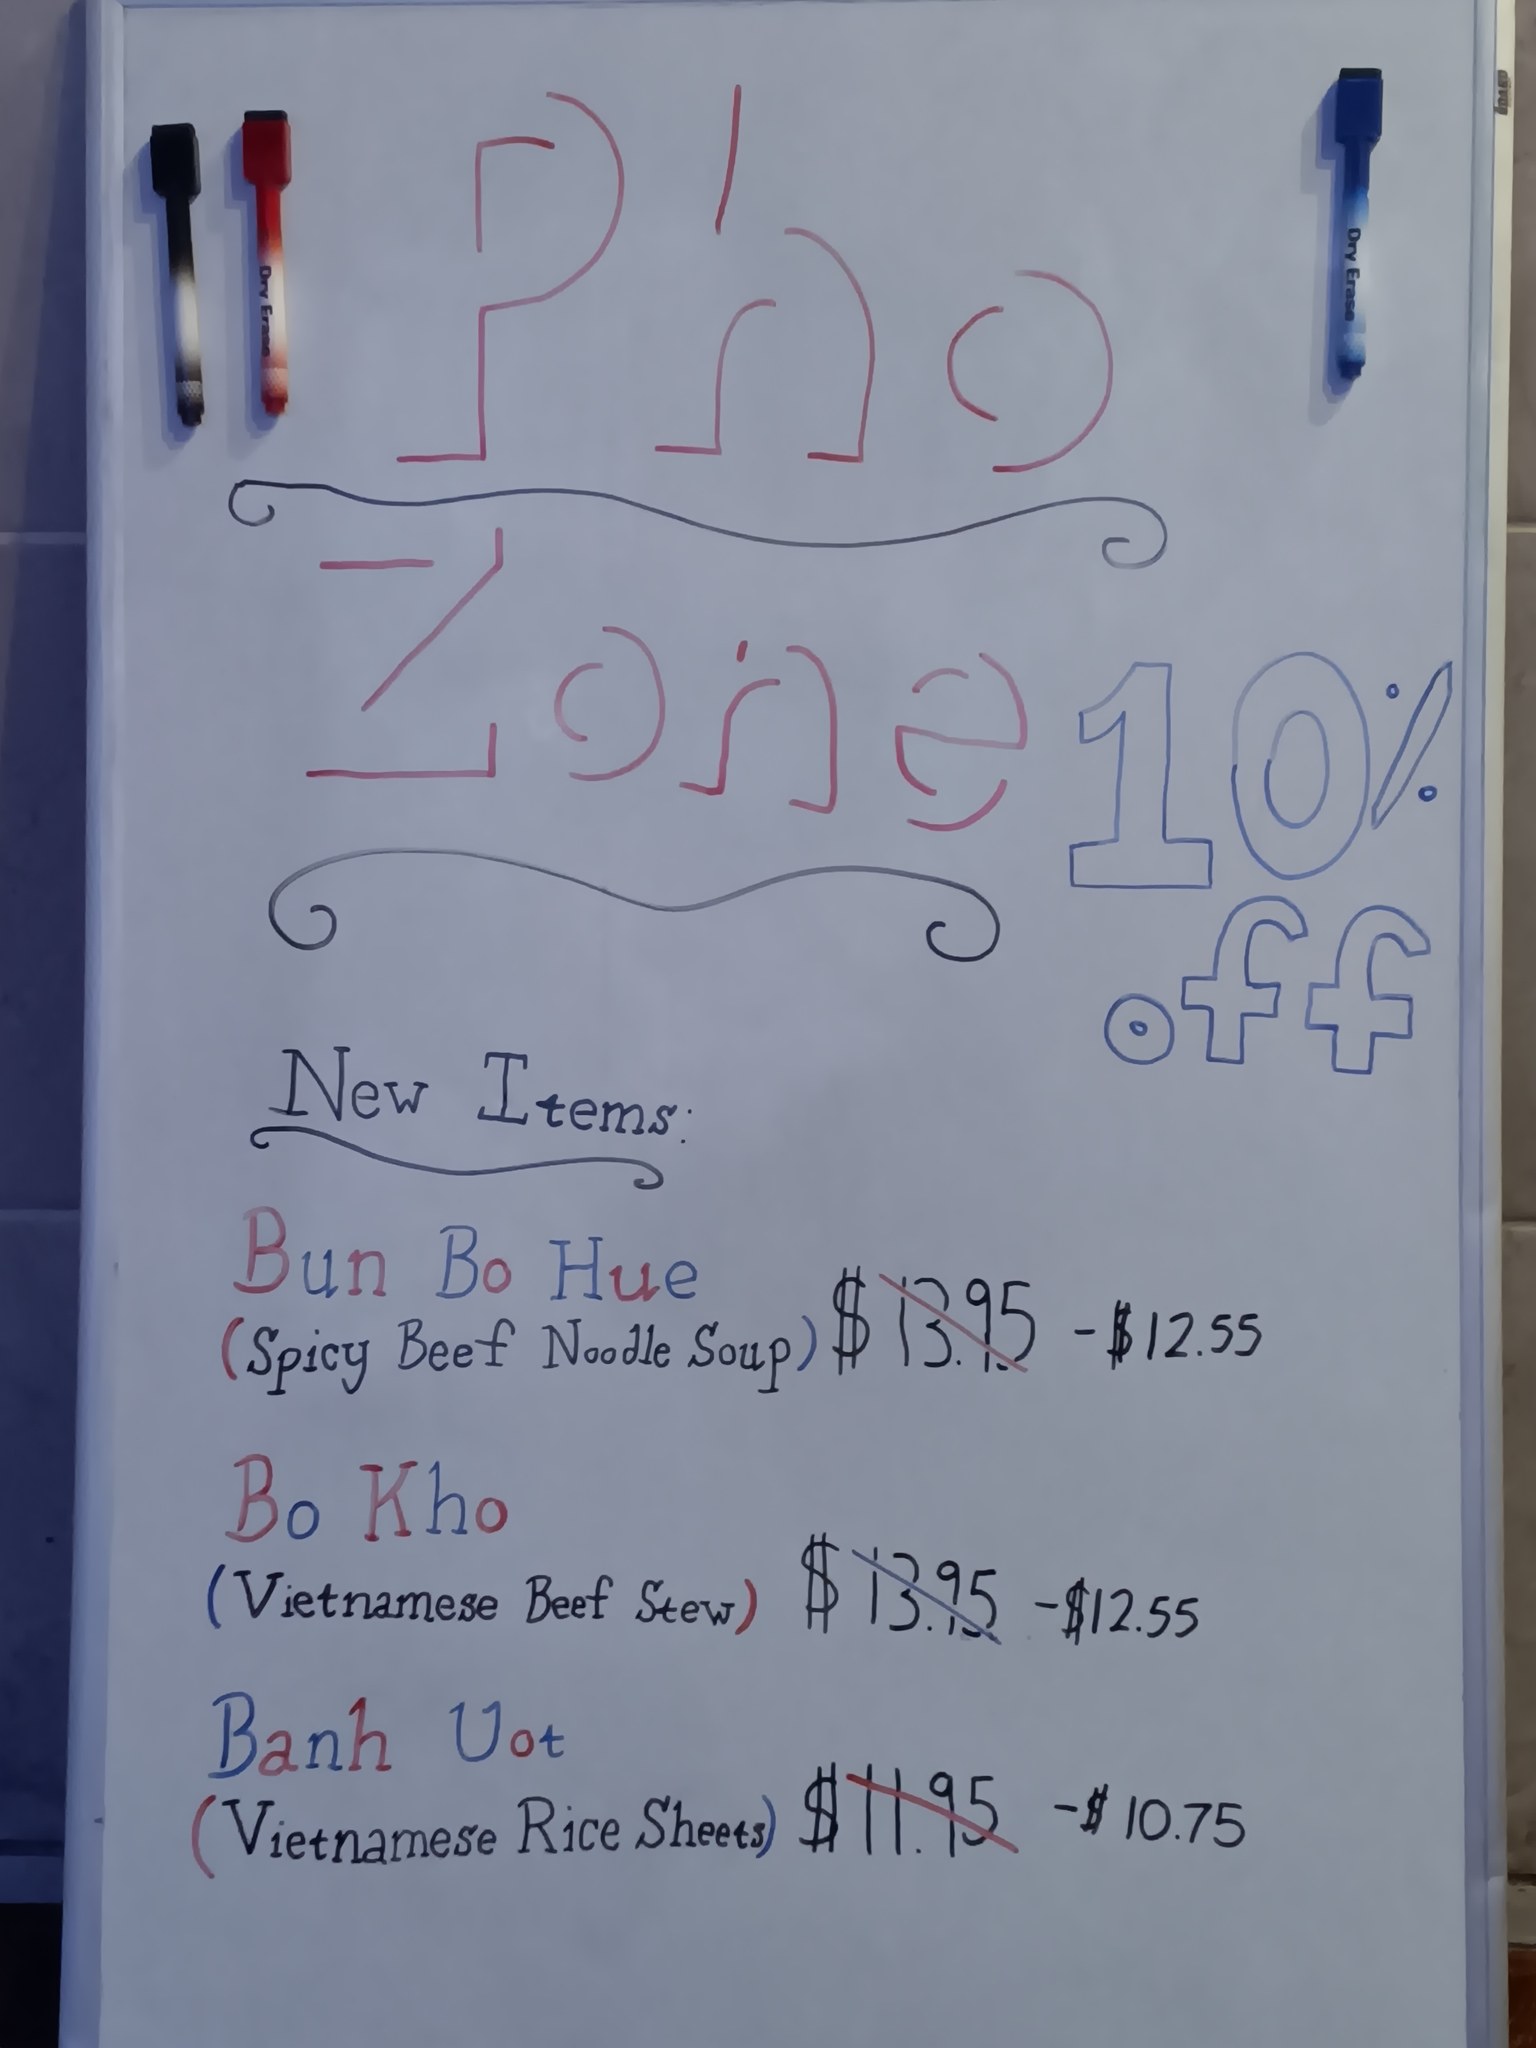 Pho
Zone
10%
off
New Items:
Bun Bo Hue
(Spicy Beef Noodle Soup) $13.95 - $12.55
Bo Kho
(Vietnamese Beef Stew) $13.95 - $12.55
Banh Uot
(Vietnamese Rice Sheets) $11.95 - $10.75
Dry Erase
Dry Erase